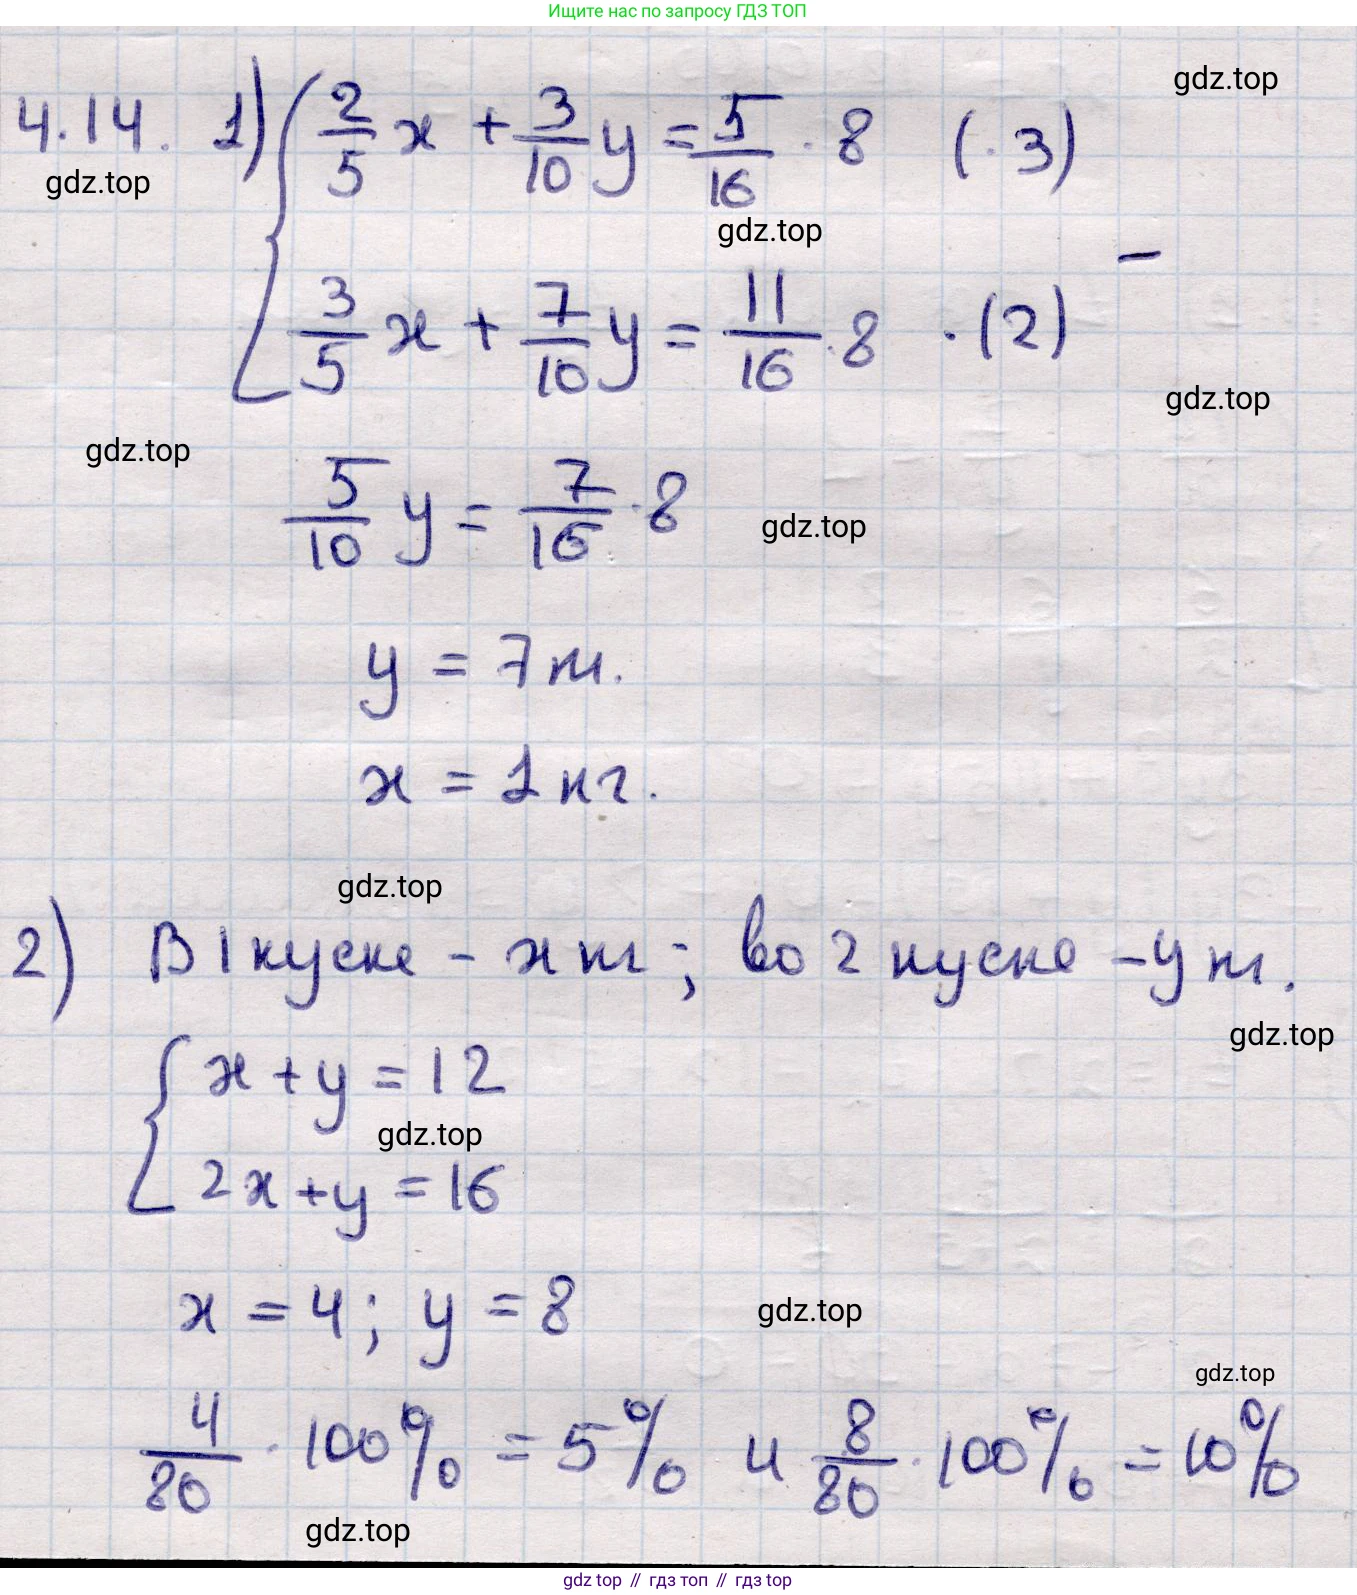 Ищите нас по запросу ГДЗ ТОП
gdz.top
4.14. 1) { 2/5 x + 3/10 y = 5/16 · 8 (· 3)
gdz.top
gdz.top
–
3/5 x + 7/10 y = 11/16 · 8 · (2)
gdz.top
gdz.top
5/10 y = 7/16 · 8
gdz.top
y = 7 кг.
x = 1 кг.
gdz.top
2) В 1 куске – x кг; во 2 куске – y кг.
gdz.top
{ x + y = 12
gdz.top
2x + y = 16
x = 4; y = 8
gdz.top
gdz.top
4/80 · 100% = 5% и 8/80 · 100% = 10%
gdz.top
gdz top // гдз топ // gdz top